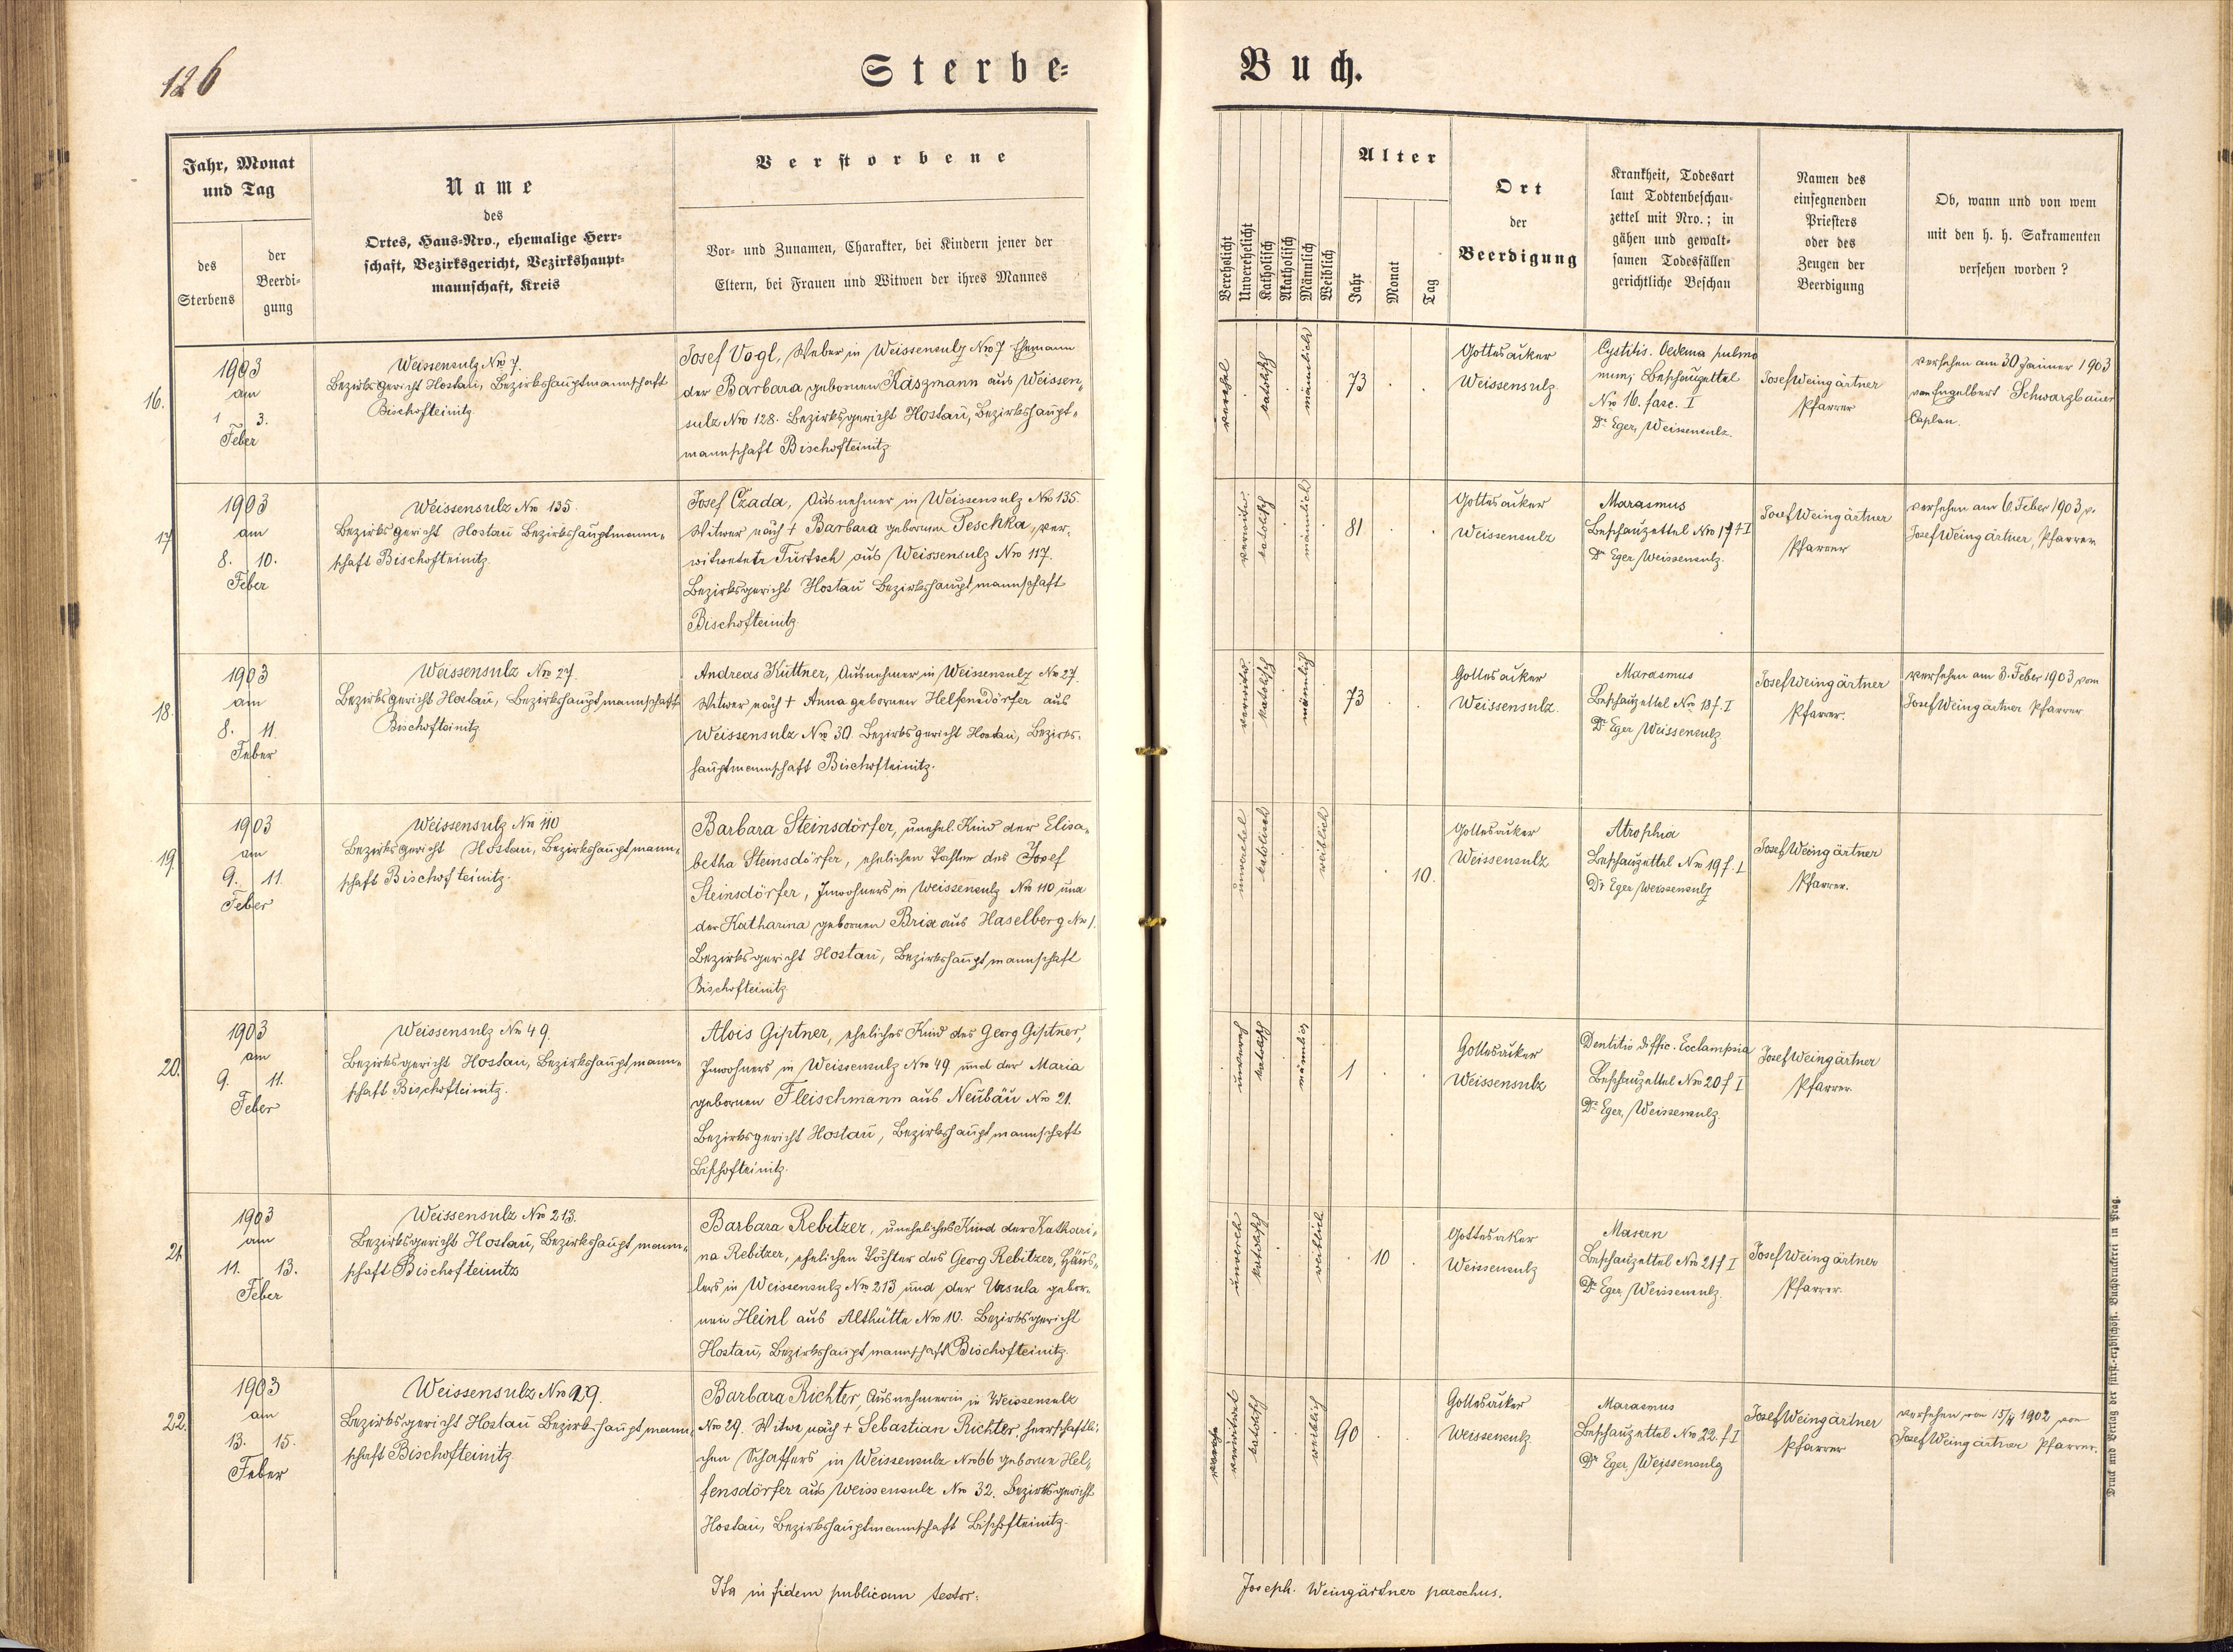 126
Sterbe=
Jahr, Monat
und Tag
des
Sterbens
der
Beerdi=
gung
Name
des
Ortes, Haus=Nro., ehemalige Herr=
schaft, Bezirksgericht, Bezirkshaupt=
mannschaft, Kreis
Verstorbene
Vor= und Zunamen, Charakter, bei Kindern jener der
Eltern, bei Frauen und Witwen der ihres Mannes
16.
1903
am
1 3.
Feber
Weissensulz Nro 7.
Bezirksgericht Hostau, Bezirkshauptmannschaft
Bischofteinitz
Josef Vogl, Weber in Weissensulz Nro 7 Ehemann
der Barbara gebornen Kaszmann aus Weissen„
sulz Nro 128. Bezirksgericht Hostau, Bezirkshaupt„
mannschaft Bischofteinitz
17
1903
am
8. 10.
Feber
Weissensulz Nro 135.
Bezirksgericht Hostau Bezirkshauptmann„
schaft Bischofteinitz.
Josef Czada, Ausnehmer in Weissensulz Nro 135.
Witwer nach † Barbara gebornen Peschka, ver„
witwete Türtsch aus Weissensulz Nro 117.
Bezirksgericht Hostau Bezirkshauptmannschaft
Bischofteinitz
18.
1903
am
8. 11.
Feber
Weissensulz Nro 27.
Bezirksgericht Hostau, Bezirkshauptmannschaft
Bischofteinitz
Andreas Küttner, Ausnehmer in Weissensulz Nro 27.
Witwer nach † Anna gebornen Helfendörfer aus
Weissensulz Nro 30. Bezirksgericht Hostau, Bezirks„
hauptmannschaft Bischofteinitz.
19.
1903
am
9. 11.
Feber
Weissensulz Nro 110
Bezirksgericht Hostau, Bezirkshauptmann„
schaft Bischofteinitz.
Barbara Steinsdörfer, unehel. Kind der Elisa„
betha Steinsdörfer, ehelichen Tochter des Josef
Steinsdörfer, Inwohners in Weissensulz Nro 110 und
der Katharina gebornen Brix aus Haselberg Nro 1.
Bezirksgericht Hostau, Bezirkshauptmannschaft
Bischofteinitz
20.
1903
am
9. 11.
Feber
Weissensulz Nro 49.
Bezirksgericht Hostau, Bezirkshauptmann„
schaft Bischofteinitz.
Alois Giptner, eheliches Kind des Georg Giptner,
Inwohners in Weissensulz Nro 49 und der Maria
gebornen Fleischmann aus Neubäu Nro 21.
Bezirksgericht Hostau, Bezirkshauptmannschaft
Bischofteinitz.
21.
1903
am
11. 13.
Feber
Weissensulz Nro 213.
Bezirksgericht Hostau, Bezirkshauptmann„
schaft Bischofteinitz
Barbara Rebitzer, uneheliches Kind der Kathari„
na Rebitzer, ehelichen Tochter des Georg Rebitzer, Häus„
lers in Weissensulz Nro 213 und der Ursula gebor„
nen Heinl aus Althütte Nro 10. Bezirksgericht
Hostau, Bezirkshauptmannschaft Bischofteinitz.
22.
1903
am
13. 15.
Feber
Weissensulz Nro 29.
Bezirksgericht Hostau Bezirkshauptmann„
schaft Bischofteinitz
Barbara Richter, Ausnehmerin in Weissensulz
Nro 29. Witwe nach † Sebastian Richter, herrschaftli„
chen Schaffers in Weissensulz Nro 66 geborne Hel„
fensdörfer aus Weissensulz Nro 32. Bezirksgericht
Hostau, Bezirkshauptmannschaft Bischofteinitz.
Ita in fidem publicam testor:
Buch.
Verehelicht
Unverehelicht
Katholisch
Akatholisch
Männlich
Weiblich
Alter
Jahr
Monat
Tag
Ort
der
Beerdigung
Krankheit, Todesart
laut Todtenbeschau=
zettel mit Nro.; in
gähen und gewalt=
samen Todesfällen
gerichtliche Beschau
Namen des
einsegnenden
Priesters
oder des
Zeugen der
Beerdigung
Ob, wann und von wem
mit den h. h. Sakramenten
versehen worden?
verehel
katolisch
männlich
73
Gottesacker
Weissensulz
Cystitis. Oedema pulmo
num; Beschauzettel
Nro 16. fasc. I
Dr Eger, Weissensulz.
Josef Weingärtner
Pfarrer
versehen am 30 Jänner 1903
von Engelbert Schwarzbauer
Caplan.
verwitw.
katolisch
männlich
81
Gottesacker
Weissensulz
Marasmus
Beschauzettel Nro 17 f I
Dr Eger Weissensulz.
Josef Weingärtner
Pfarrer
versehen am 6. Feber 1903 v.
Josef Weingärtner, Pfarrer
verwitw.
katolisch
männlich
73
Gottesacker
Weissensulz.
Marasmus
Beschauzettel Nro 18 f. I
Dr Eger Weissensulz
Josef Weingärtner
Pfarrer.
versehen am 3. Feber 1903 vom
Josef Weingärtner Pfarrer
unverehel
katolisch
weiblich
10.
Gottesacker
Weissensulz
Atrophia
Beschauzettel Nro 19 f. I
Dr Eger Weissensulz
Josef Weingärtner
Pfarrer.
unvereh
katolisch
männlich
1
Gottesacker
Weissensulz
Dentitio diffic. Ecclampsia
Beschauzettel Nro 20 f I
Dr Eger, Weissensulz.
Josef Weingärtner
Pfarrer
unvereh
katolisch
weiblich
10
Gottesacker
Weissensulz
Masern
Beschauzettel Nro 21 f I
Dr Eger Weissensulz.
Josef Weingärtner
Pfarrer.
verwitwet
katolisch
weiblich
90
Gottesacker
Weissensulz
Marasmus
Beschauzettel Nro 22. f I
Dr Eger, Weissensulz
Josef Weingärtner
Pfarrer
versehen von 15/4 1902 von
Josef Weingärtner Pfarrer.
Joseph. Weingärtner parochus.
Druck und Verlag der fürst.-erzbischöfl. Buchdruckerei in Prag.